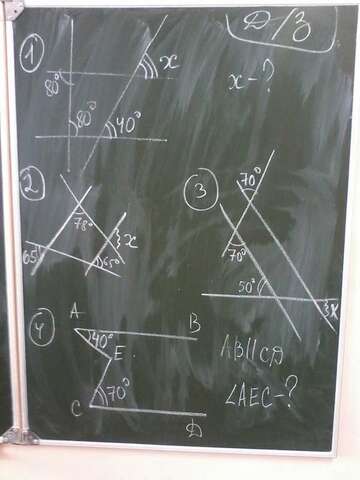 Д-/З
1
80°
x
x-?
80°
40°
2
78°
65°
65°
x
3
70°
70°
50°
x
4
A
40°
B
E
C
70°
D
AB||CD
∠AEC-?